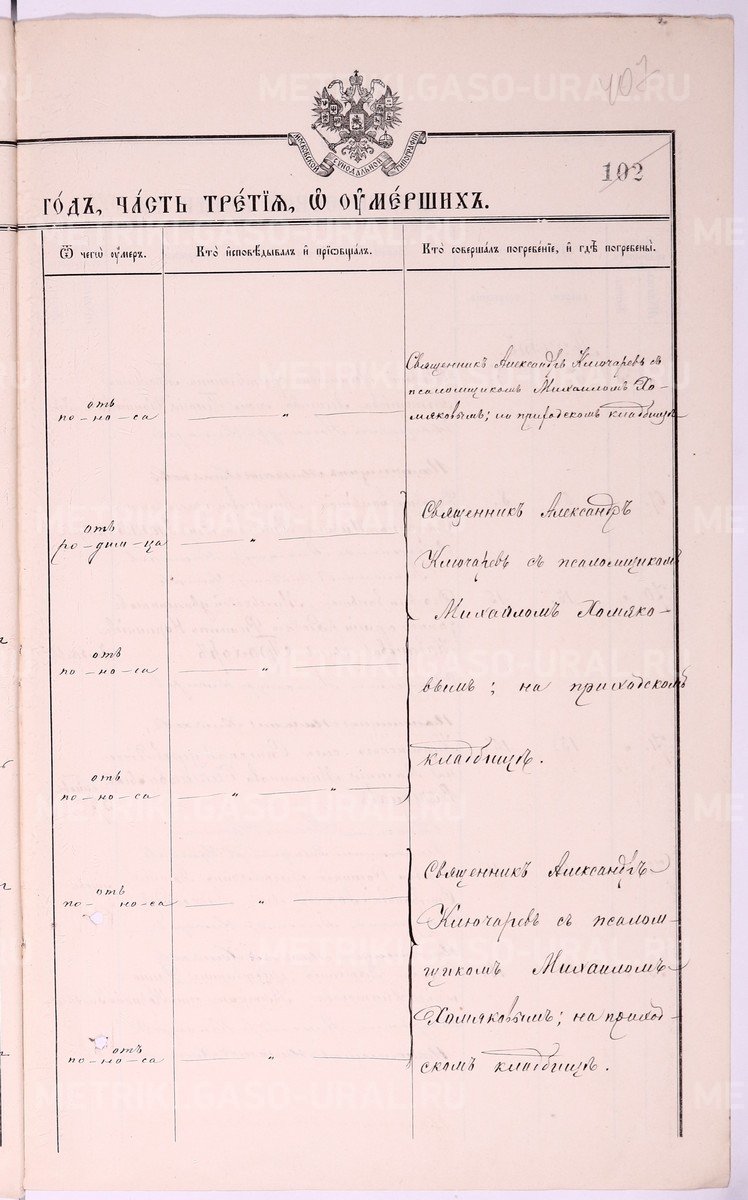 METRIKI.GASO-URAL.RU
407
МОСКОВСКОЙ СѴНОДАЛЬНОЙ ТИПОГРАФІИ
102
ГО́ДЪ, ЧА́СТЬ ТРЕ́ТІѦ, Ѽ ОУ҆МЕ́РШИХЪ.
Ѿ чегѡ̀ оу҆́меръ.
Кто̀ и҆сповѣ́дывалъ и҆ прїѡбща́лъ.
Кто̀ соверша́лъ погребе́нїе, и҆ гдѣ̀ погребены̀.
Священникъ Александръ Ключаревъ съ
псаломщикомъ Михаиломъ Хо-
мяковымъ; на приходскомъ кладбищѣ
отъ
по-но-са — „ —
отъ
ро-дим-ца — „ —
Священникъ Александръ
Ключаревъ съ псаломщикомъ
Михаиломъ Хомяко-
вымъ; на приходскомъ
кладбищѣ.
отъ
по-но-са — „ —
отъ
по-но-са — „ — „ —
отъ
по-но-са — „ —
Священникъ Александръ
Ключаревъ съ псалом-
щикомъ Михаиломъ
Хомяковымъ; на приход-
скомъ кладбищѣ.
отъ
по-но-са — „ —